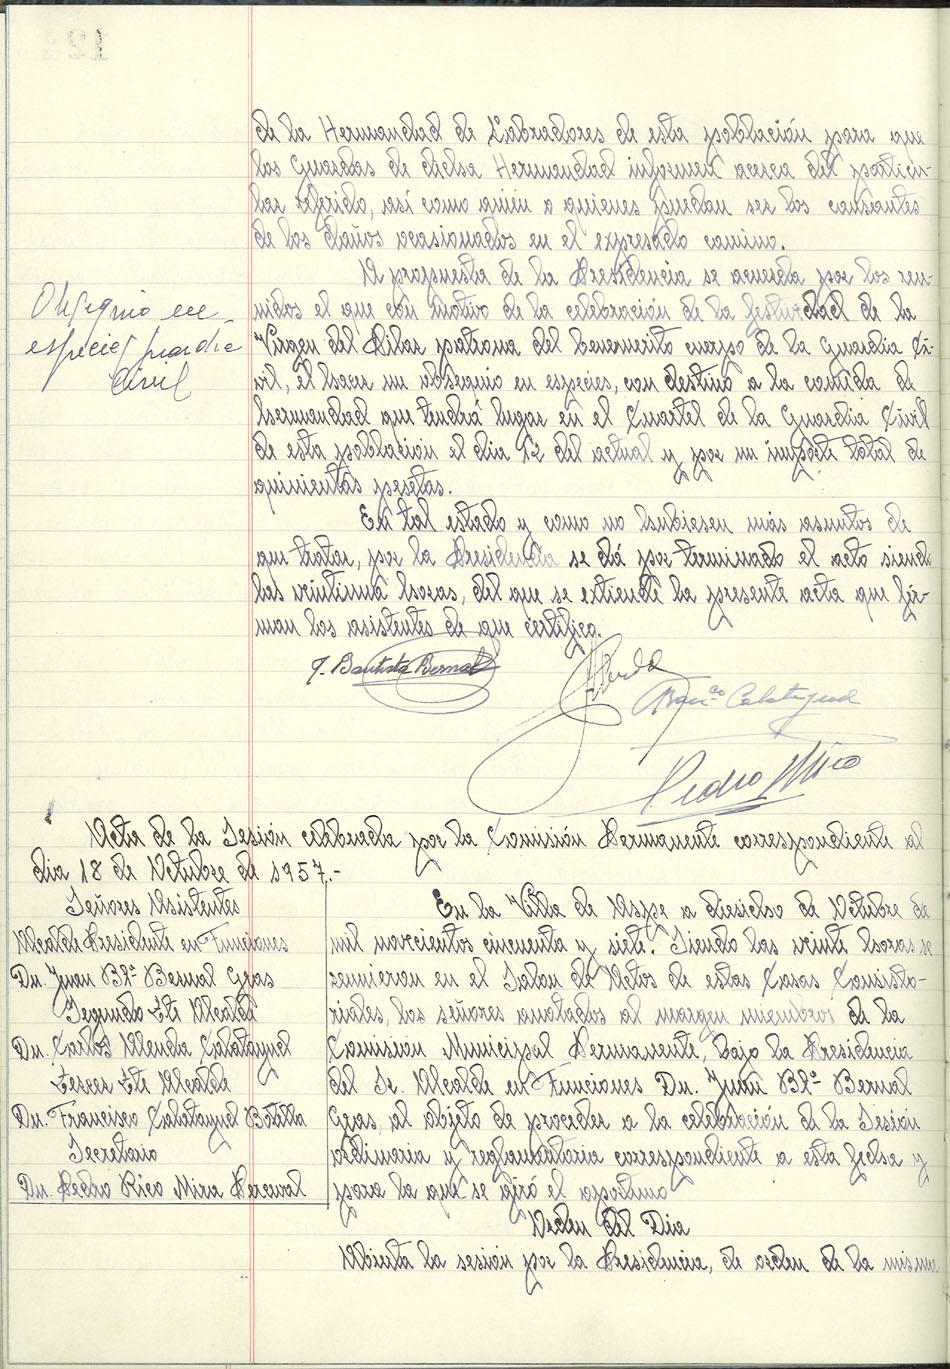 de la Hermandad de Labradores de esta población para que
los Guardas de dicha Hermandad informen acerca del particu-
lar referido, así como quién o quienes puedan ser los causantes
de los daños ocasionados en el expresado camino.
A propuesta de la Presidencia se acuerda por los reu-
nidos el que con motivo de la celebración de la festividad de la
Obsequio en
especies guardia
Civil
Virgen del Pilar patrona del benemérito cuerpo de la Guardia Ci-
vil, el hacer un obsequio en especies, con destino a la comida de
hermandad que tendrá lugar en el Cuartel de la Guardia Civil
de esta población el dia 12 del actual y por un importe total de
quinientas pesetas.
En tal estado y como no hubiesen más asuntos de
que tratar, por la Presidencia se dá por terminado el acto siend
las veintiuna horas, del que se extiende la presente acta que fir-
man los asistentes de que certifico.
J. Bautista Bernal
Franco Calatayud
Pedro Rico
Acta de la Sesión celebrada por la Comisión Permanente correspondiente al
dia 18 de Octubre de 1957.-
Señores Asistentes
Alcalde Presidente en Funciones
Dn. Juan Btª Bernal Gras
Segundo Tte Alcalde
Dn. Carlos Alenda Calatayud
Tercer Tte Alcalde
Dn. Francisco Calatayud Botella
Secretario
Dn. Pedro Rico Mira Perceval
En la Villa de Aspe a dieciocho de Octubre de
mil novecientos cincuenta y siete. Siendo las veinte horas se
reunieron en el Salon de Actos de estas Casas Consisto-
riales, los señores anotados al margen miembros de la
Comisión Municipal Permanente, bajo la Presidencia
del Sr. Alcalde en Funciones Dn. Juan Btª Bernal
Gras, al objeto de proceder a la celebración de la Sesión
ordinaria y reglamentaria correspondiente a esta fecha y
para la que se giró el oportuno
Orden del Dia
Abierta la sesión por la Presidencia, de orden de la misma